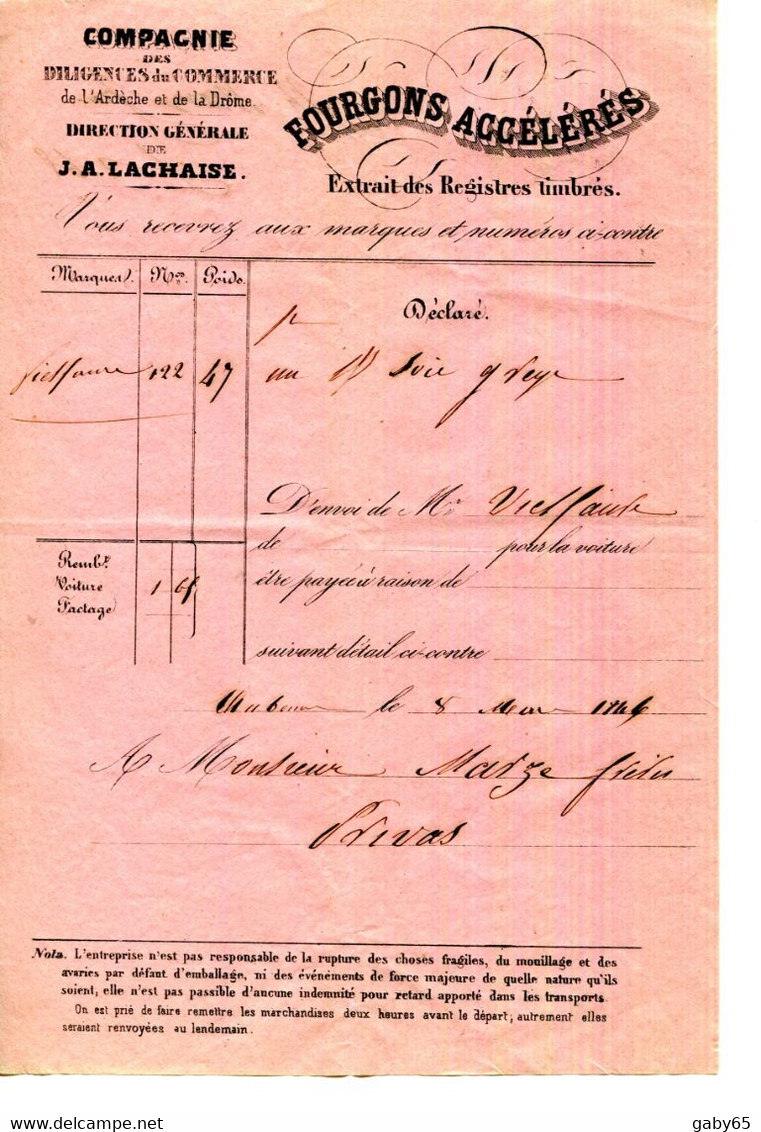 COMPAGNIE
DES
DILIGENCES du COMMERCE
de l'Ardèche et de la Drôme.
DIRECTION GÉNÉRALE
DE
J. A. LACHAISE.
FOURGONS ACCÉLÉRÉS
Extrait des Registres timbrés.
Vous recevrez aux marques et numéros ci-contre
Marques. Nos. Poids.
Déclaré.
Vielfaure 122 47 un Soie
D'envoi de Mr. Vielfaure
de pour la voiture
être payée à raison de
Rembt.
Voiture 1 65
Factage
suivant détail ci-contre
Aubenas le 8 1846
A Monsieur Marze frères
Privas
Nota. L'entreprise n'est pas responsable de la rupture des choses fragiles, du mouillage et des
avaries par défaut d'emballage, ni des événements de force majeure de quelle nature qu'ils
soient, elle n'est pas passible d'aucune indemnité pour retard apporté dans les transports.
On est prié de faire remettre les marchandises deux heures avant le départ; autrement elles
seraient renvoyées au lendemain.
gaby65